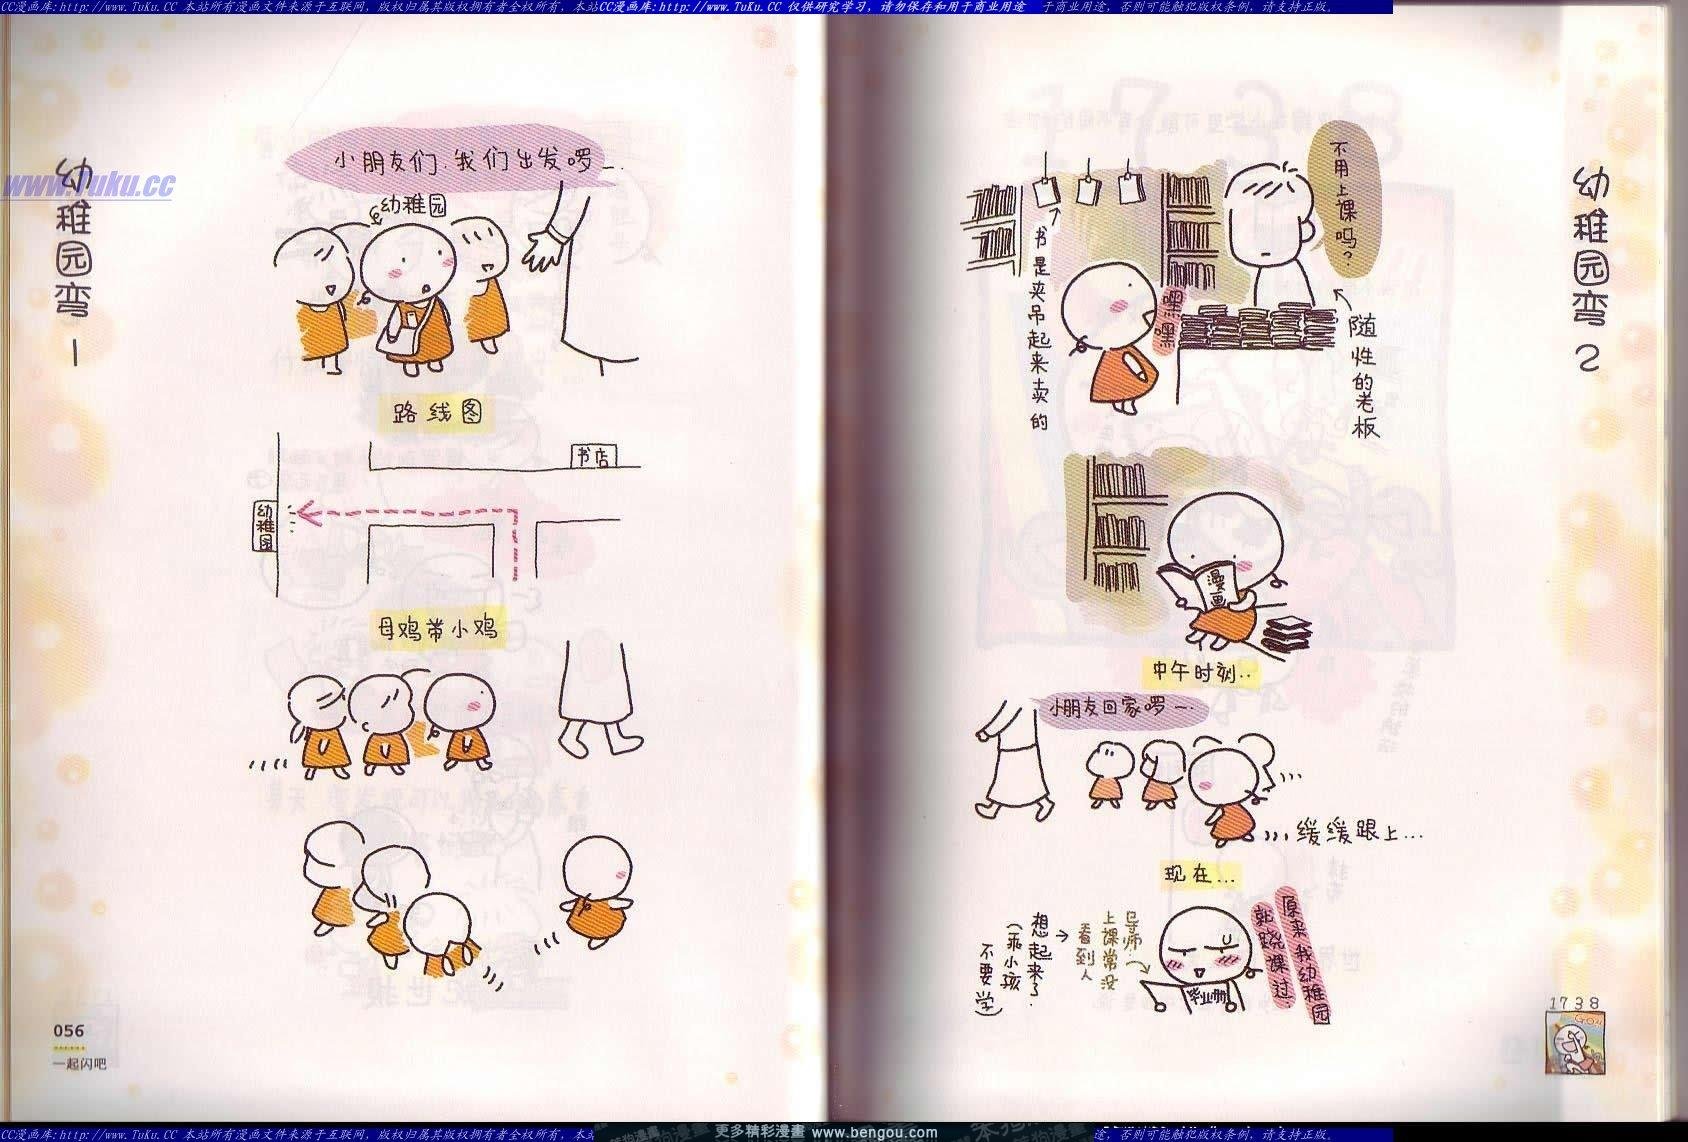 CC漫画库:http://www.TuKu.CC 本站所有漫画文件来源于互联网，版权归属其版权拥有者全权所有，本站CC漫画库:http://www.TuKu.CC 仅供研究学习，请勿保存和用于商业用途 于商业用途，否则可能触犯版权条例，请支持正版。
幼稚园弯 1
www.Tuku.cc
小朋友们,我们出发啰—..
幼稚园
路线图
书店
幼稚园
母鸡带小鸡
056
一起闪吧
幼稚园弯 2
不用上课吗?
书是夹吊起来卖的
嘿嘿嘿
随性的老板
漫画
中午时刻..
小朋友回家啰—..
缓缓跟上...
现在...
原来我幼稚园
就跷课过.
导师..
上课常没
看到人
想起来了.
(乖小孩
不要学)
毕业册
1738
CC漫画库:http://www.TuKu.CC 本站所有漫画文件来源于互联网，版权归属其版权拥有者全权所有，本
更多精彩漫画 www.bengou.com
途，否则可能触犯版权条例，请支持正版。